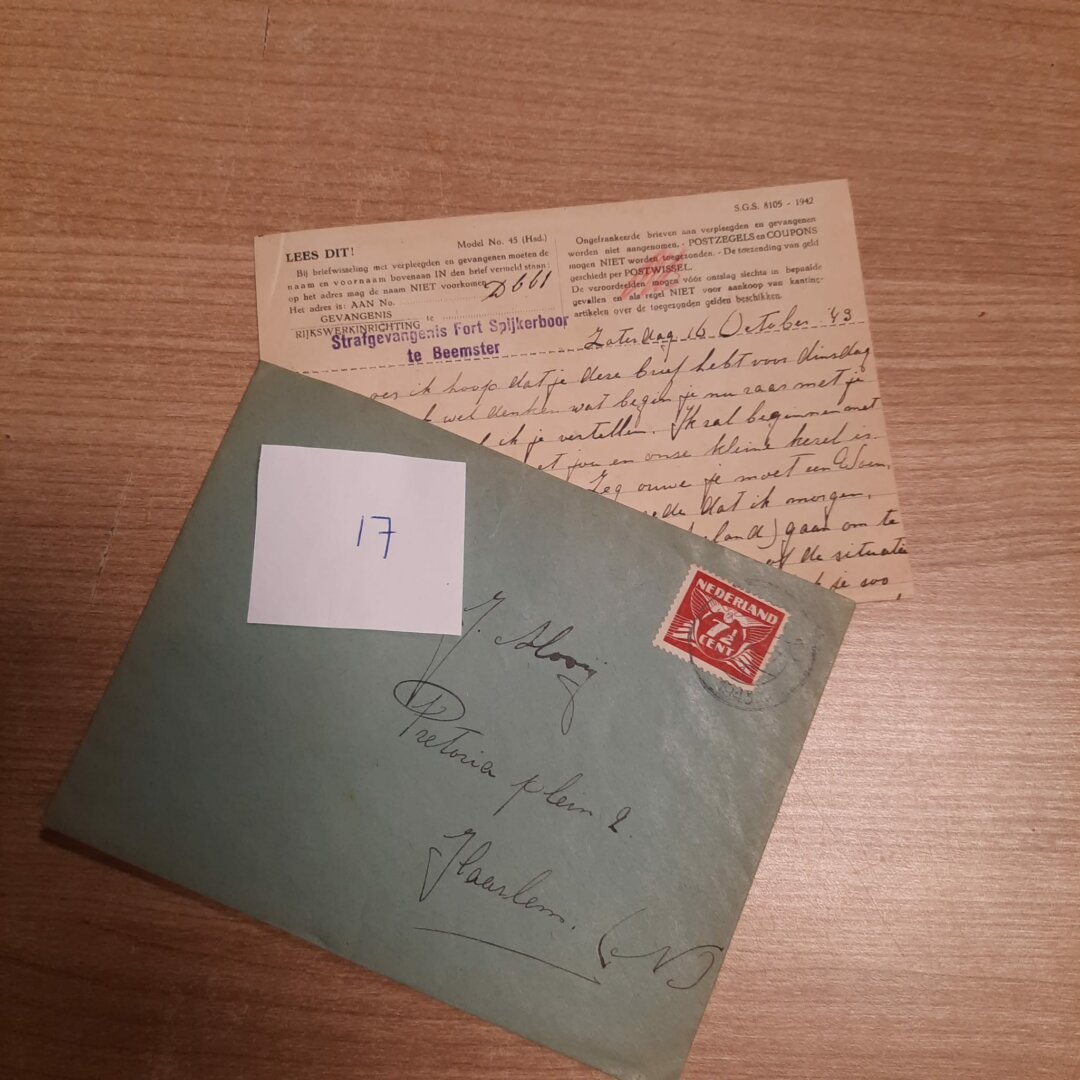 S.G.S. 8105 - 1942
LEES DIT!
Model No. 45 (Hsd.)
Bij briefwisseling met verpleegden en gevangenen moeten de
naam en voornaam bovenaan IN den brief vermeld staan;
op het adres mag de naam NIET voorkomen.
Het adres is: AAN No. D 661
GEVANGENIS
RIJKSWERKINRICHTING te
Strafgevangenis Fort Spijkerboor
te Beemster
Ongefrankeerde brieven aan verpleegden en gevangenen
worden niet aangenomen. - POSTZEGELS en COUPONS
mogen NIET worden toegezonden. - De toezending van geld
geschiedt per POSTWISSEL.
De veroordeelden mogen vóór ontslag slechts in bepaalde
gevallen en als regel NIET voor aankoop van kantine-
artikelen over de toegezonden gelden beschikken.
Zaterdag 16 October '43
ik hoop dat je deze brief hebt voor dinsdag
wel denken wat begin je nu
ik je vertellen. Ik zal beginnen met
jou en onze kleine kezel is.
Zeg ouwe je moet een
dat ik morgen,
land) gaan om te
of de situatie
je zoo
17
NEDERLAND
7½
CENT
J. Slooij
Pretoria plein 2
Haarlem. (N)